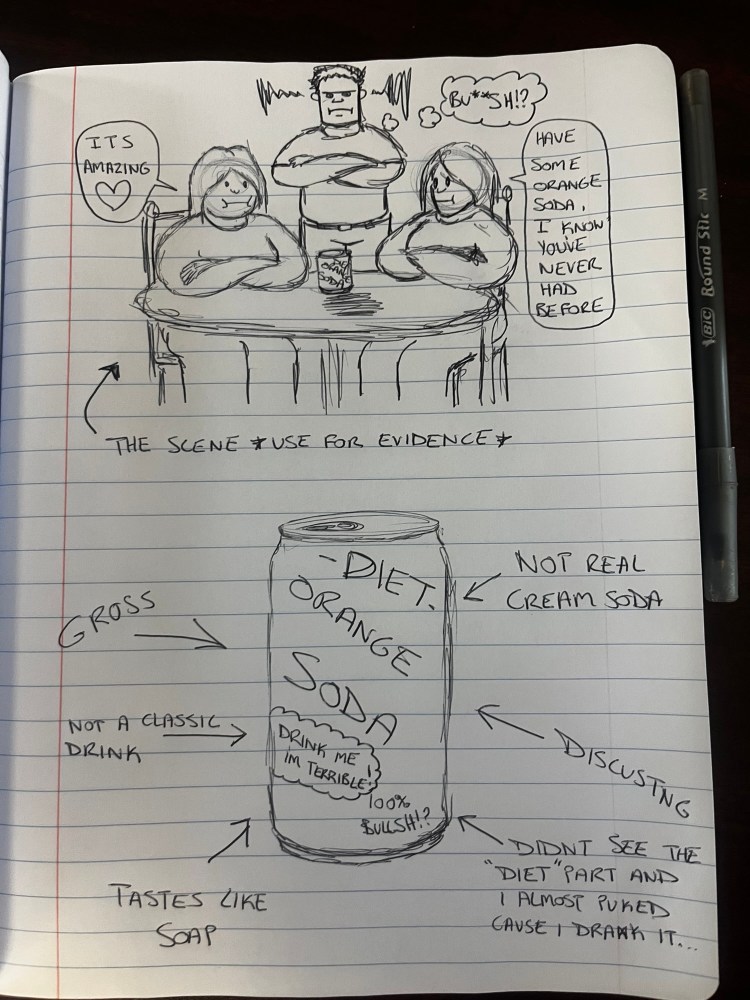 BU**SH!?
ITS
AMAZING
♡
HAVE
SOME
ORANGE
SODA,
I KNOW
YOU'VE
NEVER
HAD
BEFORE
ORANGE
SODA
THE SCENE *USE FOR EVIDENCE*
-DIET.
ORANGE
SODA
DRINK ME
IM TERRIBLE
100%
BULLSH!?
GROSS
NOT REAL
CREAM SODA
NOT A CLASSIC
DRINK
DISCUSTNG
TASTES LIKE
SOAP
DIDNT SEE THE
"DIET" PART AND
I ALMOST PUKED
CAUSE I DRANK IT...
BIC Round Stic M